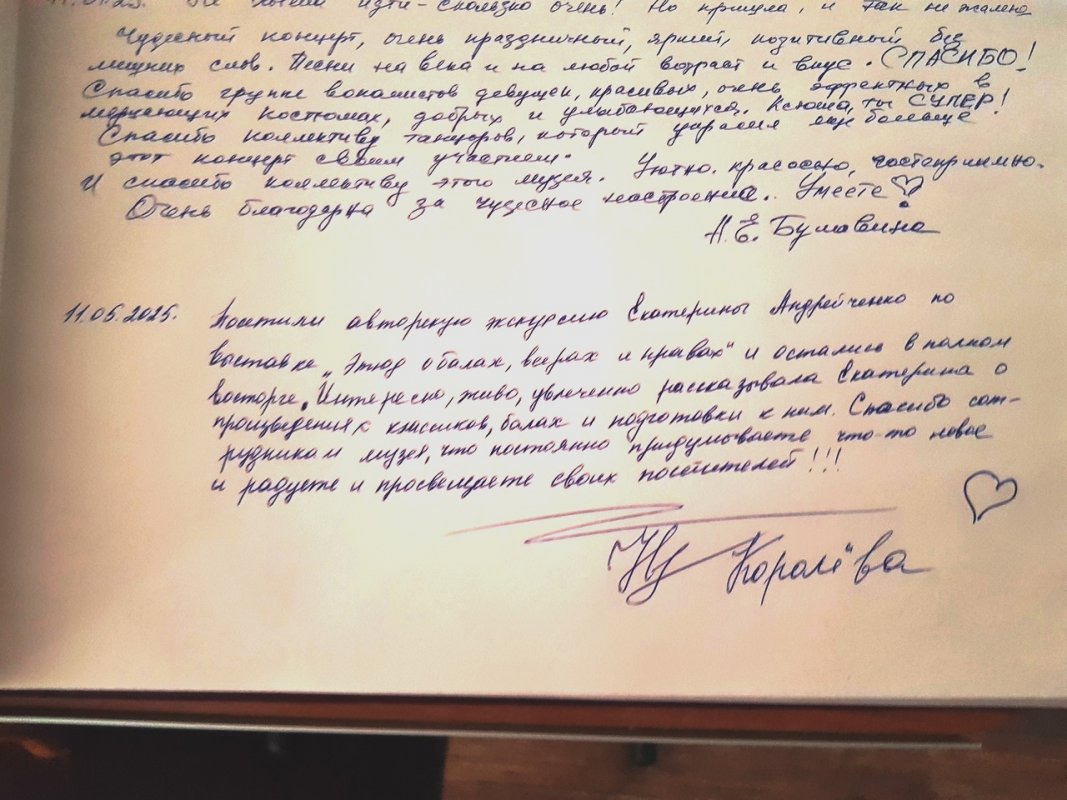 11.01.25. Не хотела идти - скользко очень! Но пришла, и так не жалею
Чудесный концерт, очень праздничный, яркий, позитивный без
лишних слов. Песни на века и на любой возраст и вкус. СПАСИБО!
Спасибо группе вокалистов девушек, красивых, очень эффектных в
мерцающих костюмах, добрых и улыбающихся. Ксюша, ты СУПЕР!
Спасибо коллективу танцоров, который украсил еще больше
этот концерт своим участием.
И спасибо коллективу этого музея. Уютно, красочно, гостеприимно.
Очень благодарна за чудесное настроение..
Н.Е. Булавина
11.05.2025. Посетили авторскую экскурсию Екатерины Андрейченко по
выставке „Этюд о балах, веерах и нравах" и остались в полном
восторге. Интересно, живо, увлеченно рассказывала Екатерина о
произведениях классиков, балах и подготовки к ним. Спасибо сот-
рудникам музея, что постоянно придумываете что-то новое
и радуете и просвещаете своих посетителей!!!
Королёва